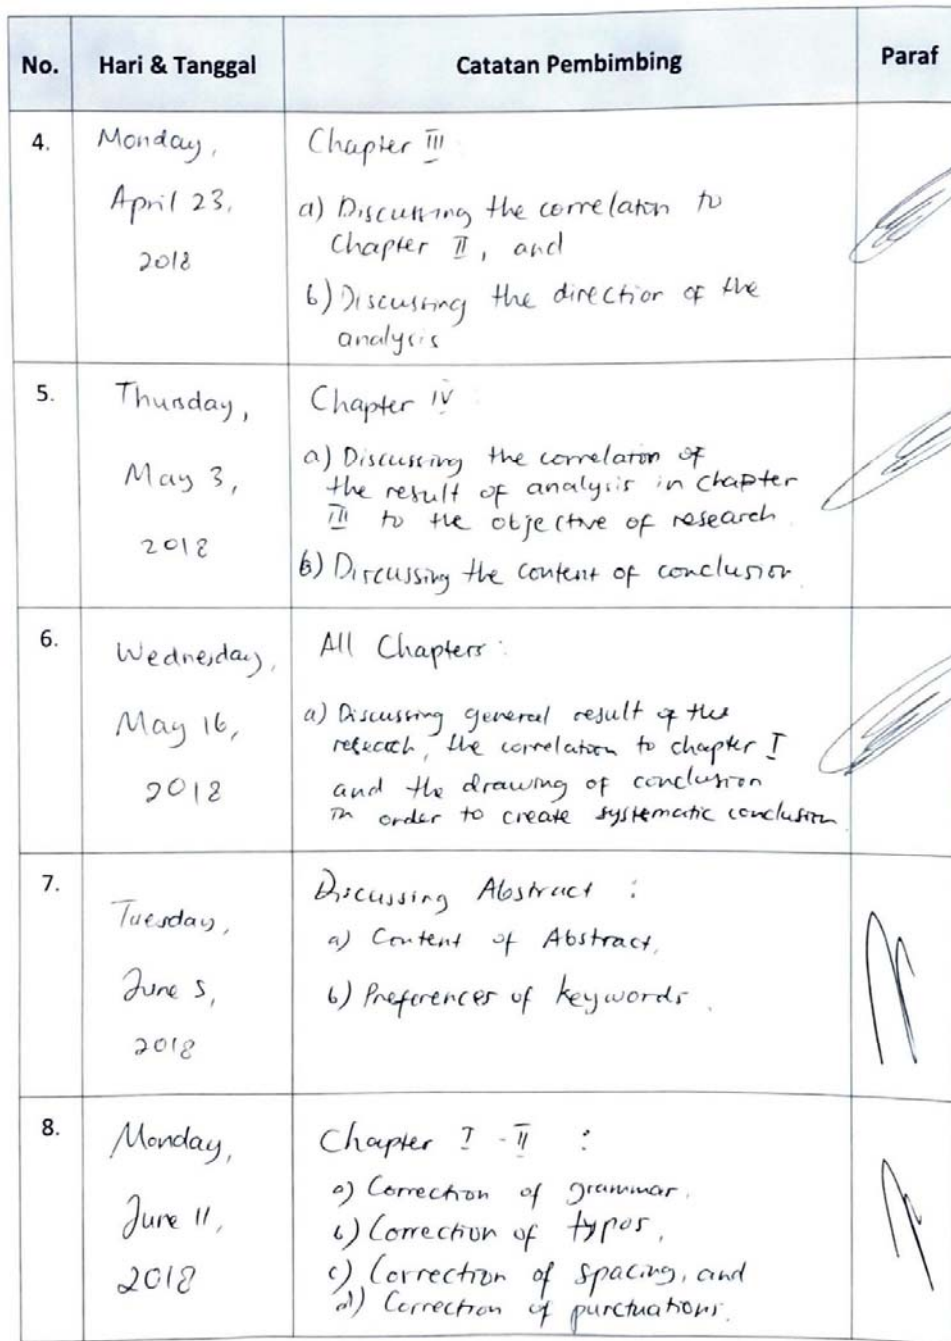 No. Hari & Tanggal Catatan Pembimbing Paraf
4.
Monday,
April 23,
2018
Chapter III :
a) Discussing the correlation to
Chapter II, and
b) Discussing the direction of the
analysis
5.
Thursday,
May 3,
2018
Chapter IV :
a) Discussing the correlation of
the result of analysis in chapter
III to the objective of research.
b) Discussing the content of conclusion.
6.
Wednesday,
May 16,
2018
All Chapters :
a) Discussing general result of the
research, the correlation to chapter I
and the drawing of conclusion
in order to create systematic conclusion.
7.
Tuesday,
June 5,
2018
Discussing Abstract :
a) Content of Abstract,
b) Preferences of keywords.
8.
Monday,
June 11,
2018
Chapter I - II :
a) Correction of grammar,
b) Correction of typos,
c) Correction of spacing, and
d) Correction of punctuations.